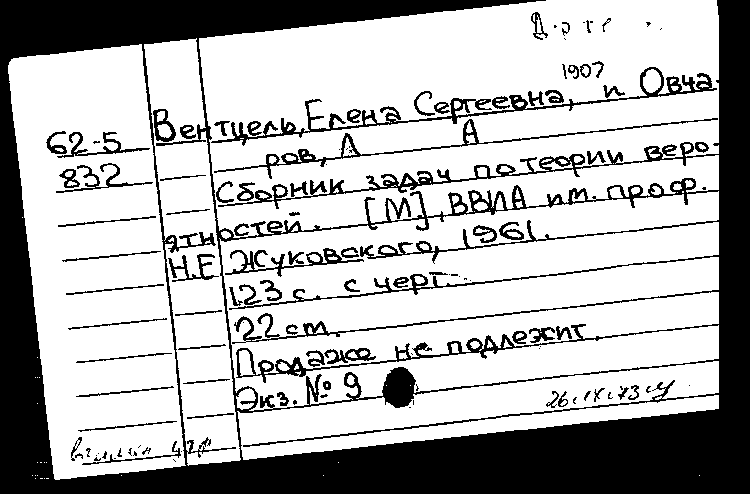 1907
62-5 Вентцель, Елена Сергеевна, и Овча-
832 ров, Л А
Сборник задач по теории веро-
ятностей. [М], ВВИА им. проф.
Н.Е Жуковского, 1961.
123 с. с черт.
22 cm.
Продаже не подлежит.
Экз. № 9